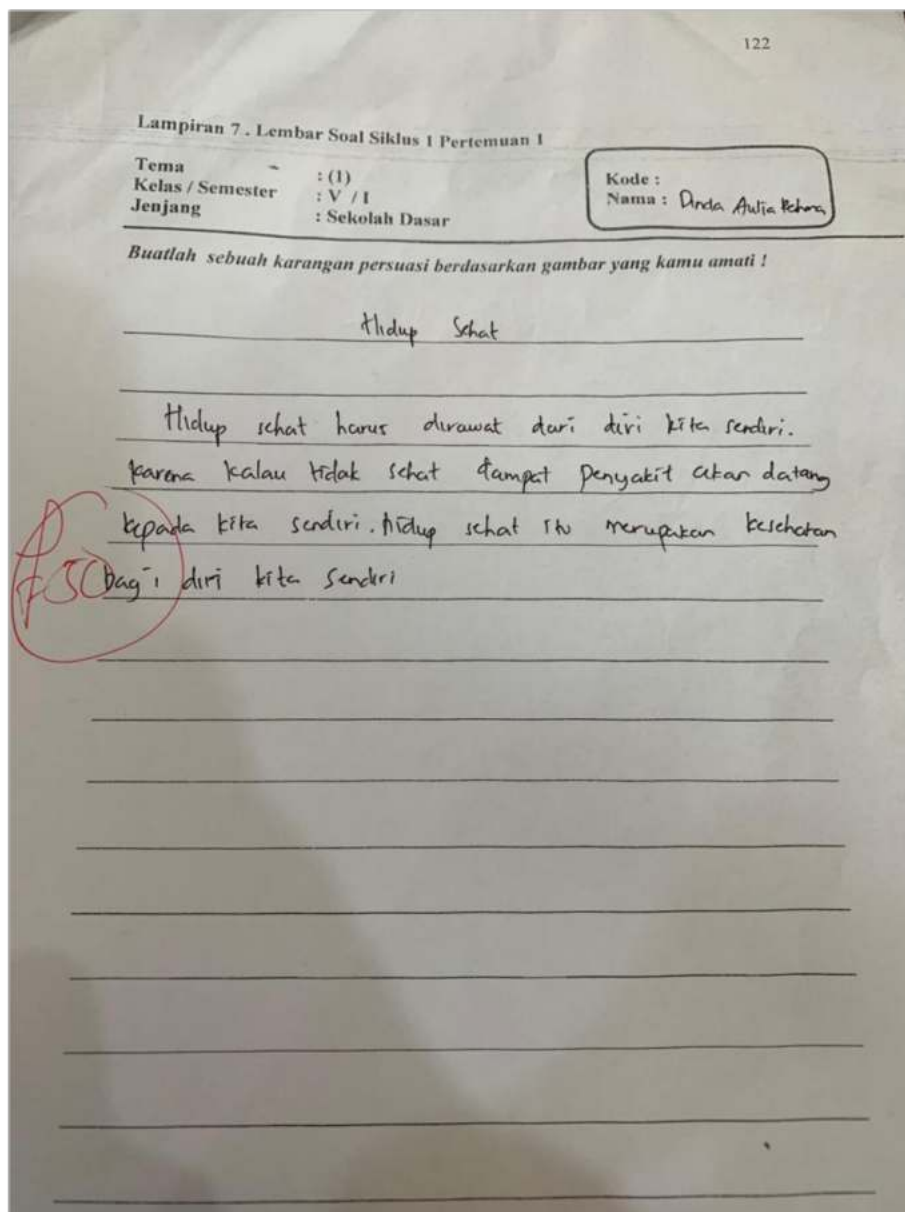 122
Lampiran 7 . Lembar Soal Siklus 1 Pertemuan 1
Tema : (1)
Kelas / Semester : V / I
Jenjang : Sekolah Dasar
Kode :
Nama : Dinda Aulia
Buatlah sebuah karangan persuasi berdasarkan gambar yang kamu amati !
Hidup Sehat
Hidup sehat harus dirawat dari diri kita sendiri.
karena kalau tidak sehat dampat penyakit akan datang
kepada kita sendiri. hidup sehat itu merupakan kesehatan
bagi diri kita sendiri
50